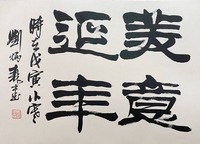 美意
延年
時在戊寅小
劉炳森書